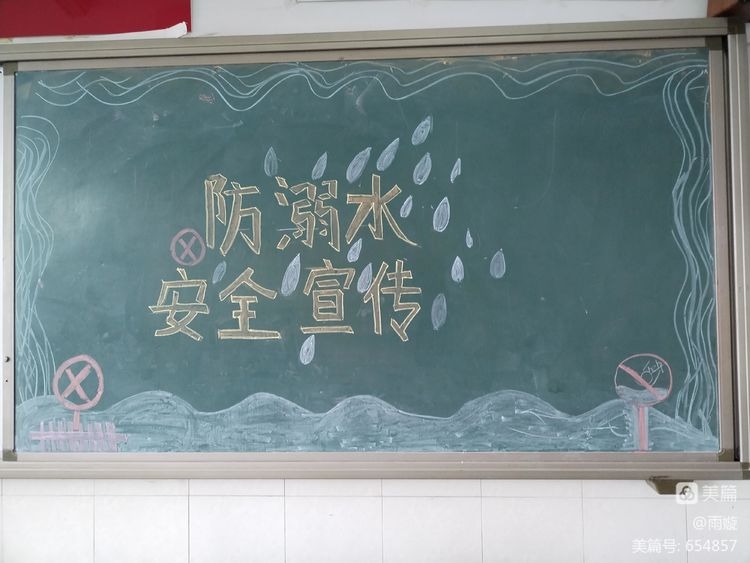 防溺水
安全宣传
美篇
@雨璇
美篇号: 654857